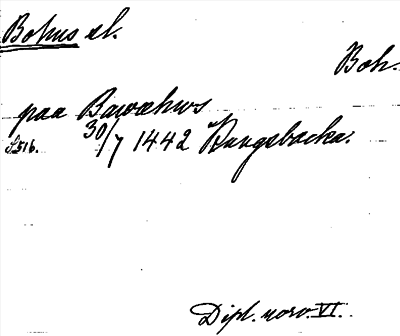 Bohus sl.
Boh.
paa Bawæhws
S516. 30/7 1442 Kungsbacka.
Dipl. norv. VI.